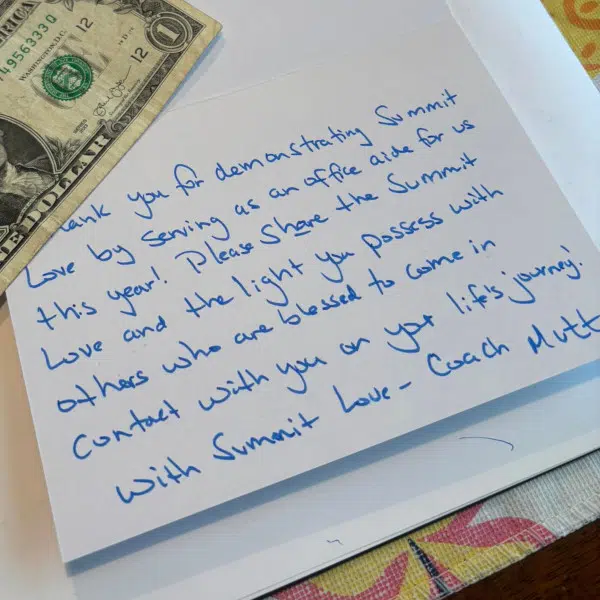 AMERICA
49563330
12
WASHINGTON, D.C.
12
1
NE DOLLAR
ank you for demonstrating Summit
Love by serving as an office aide for us
this year! Please Share the Summit
Love and the light you possess with
others who are blessed to come in
Contact with you on your life's journey!
With Summit Love - Coach Mutt